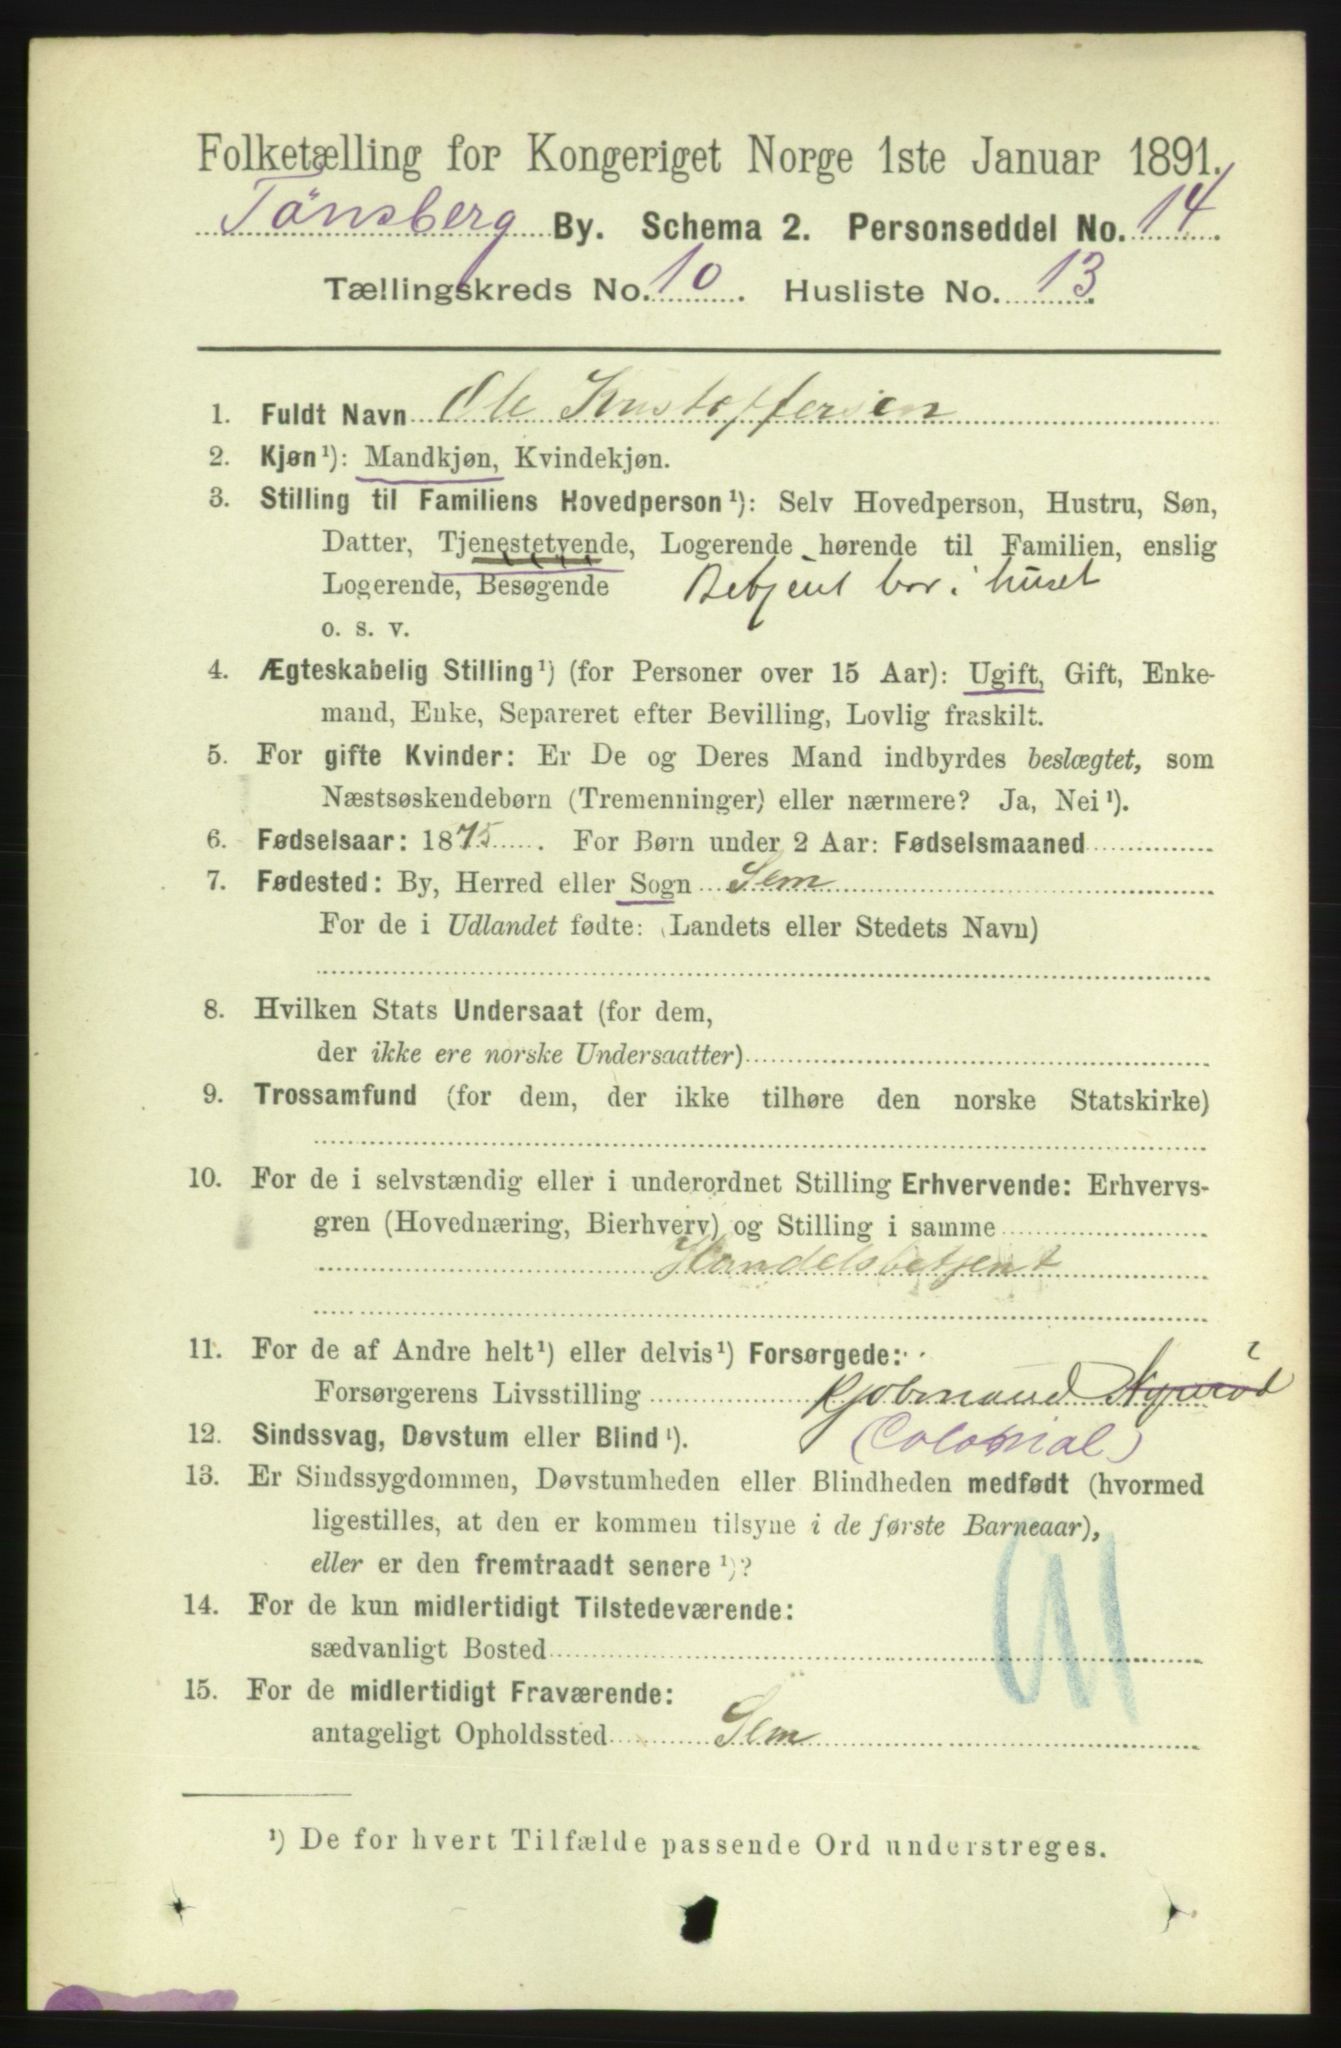 Folketælling for Kongeriget Norge 1ste Januar 1891.
Tönsberg By. Schema 2. Personseddel No. 14.
Tællingskreds No. 10. Husliste No. 13.
1. Fuldt Navn Ole Kristoffersen
2. Kjøn¹): Mandkjøn, Kvindekjøn.
3. Stilling til Familiens Hovedperson¹): Selv Hovedperson, Hustru, Søn,
Datter, Tjenestetyende, Logerende hørende til Familien, enslig
Logerende, Besøgende Betjent bor i huset
o. s. v.
4. Ægteskabelig Stilling¹) (for Personer over 15 Aar): Ugift, Gift, Enke-
mand, Enke, Separeret efter Bevilling, Lovlig fraskilt.
5. For gifte Kvinder: Er De og Deres Mand indbyrdes beslægtet, som
Næstsøskendebørn (Tremenninger) eller nærmere? Ja, Nei¹).
6. Fødselsaar: 1875. For Børn under 2 Aar: Fødselsmaaned
7. Fødested: By, Herred eller Sogn Sem
For de i Udlandet fødte: (Landets eller Stedets Navn)
8. Hvilken Stats Undersaat (for dem,
der ikke ere norske Undersaatter)
9. Trossamfund (for dem, der ikke tilhøre den norske Statskirke)
10. For de i selvstændig eller i underordnet Stilling Erhvervende: Erhvervs-
gren (Hovednæring, Bierhverv) og Stilling i samme
Handelsbetjent
11. For de af Andre helt¹) eller delvis¹) Forsørgede:
Forsørgerens Livsstilling Kjøbmand
12. Sindssvag, Døvstum eller Blind¹). (Colonial)
13. Er Sindssygdommen, Døvstumheden eller Blindheden medfødt (hvormed
ligestilles, at den er kommen tilsyne i de første Barneaar),
eller er den fremtraadt senere¹)?
14. For de kun midlertidigt Tilstedeværende:
sædvanligt Bosted
15. For de midlertidigt Fraværende:
antageligt Opholdssted Sem
¹) De for hvert Tilfælde passende Ord understreges.